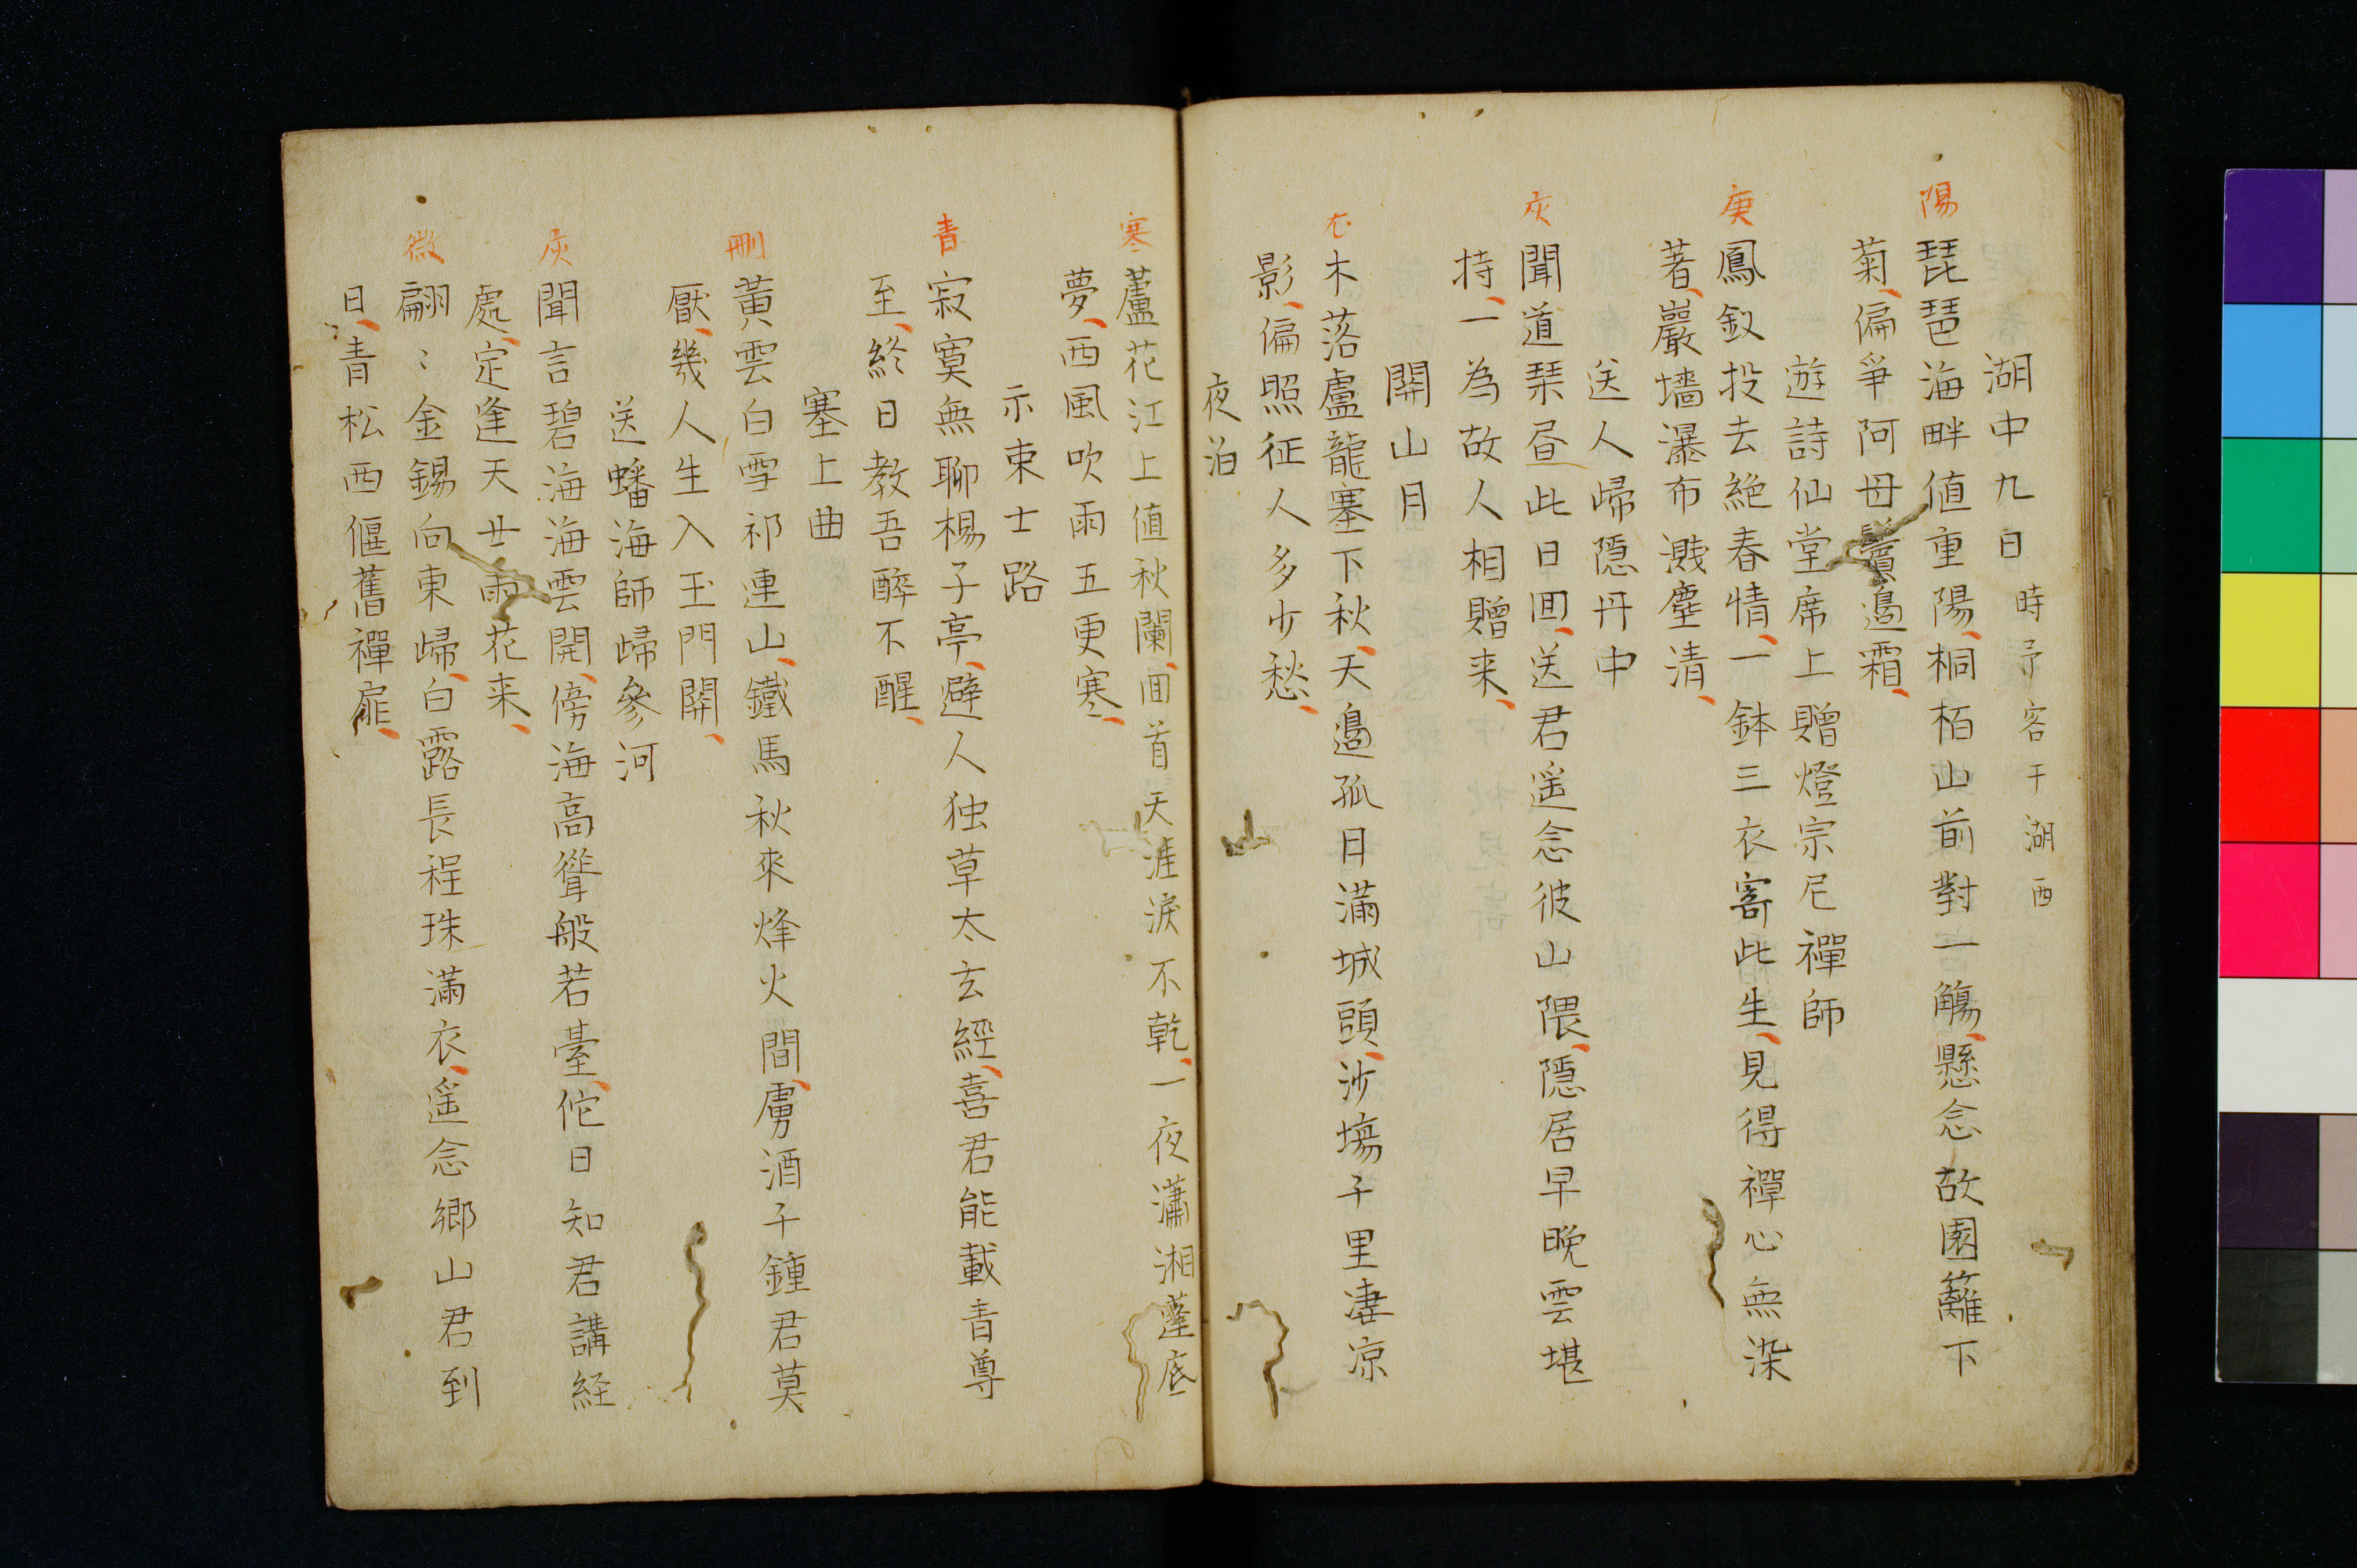 湖中九日 時予客于湖西
陽
琵琶海畔値重陽桐栢山前對一觴懸念故園籬下
菊偏爭阿母鬢邉霜
遊詩仙堂席上贈燈宗尼禪師
庚
鳳釵投去絶春情一鉢三衣寄此生見得禪心無染
著巖墻瀑布濺塵清
送人歸隱丹中
灰
聞道琹昼此日囬送君遥念彼山隈隱居早晩雲堪
持一為故人相贈来
関山月
木落盧龍塞下秋天邉孤月滿城頭沙塲千里凄凉
影偏照征人多少愁
夜泊
寒
蘆花江上値秋闌囬首天涯淚不乾一夜瀟湘蓬底
夢西風吹雨五更寒
示束士路
青
寂寞無聊楊子亭避人独草太玄經喜君能載青尊
至終日教吾醉不醒
塞上曲
刪
黃雲白雪祁連山鐵馬秋來烽火間虜酒千鍾君莫
厭幾人生入玉門関
送蟠海師歸參河
灰
聞言碧海海雲開傍海高聳般若臺佗日知君講経
處定逢天廿雨花来
微
翩〻金錫向東歸白露長程珠滿衣遥念郷山君到
日青松西偃舊禪扉